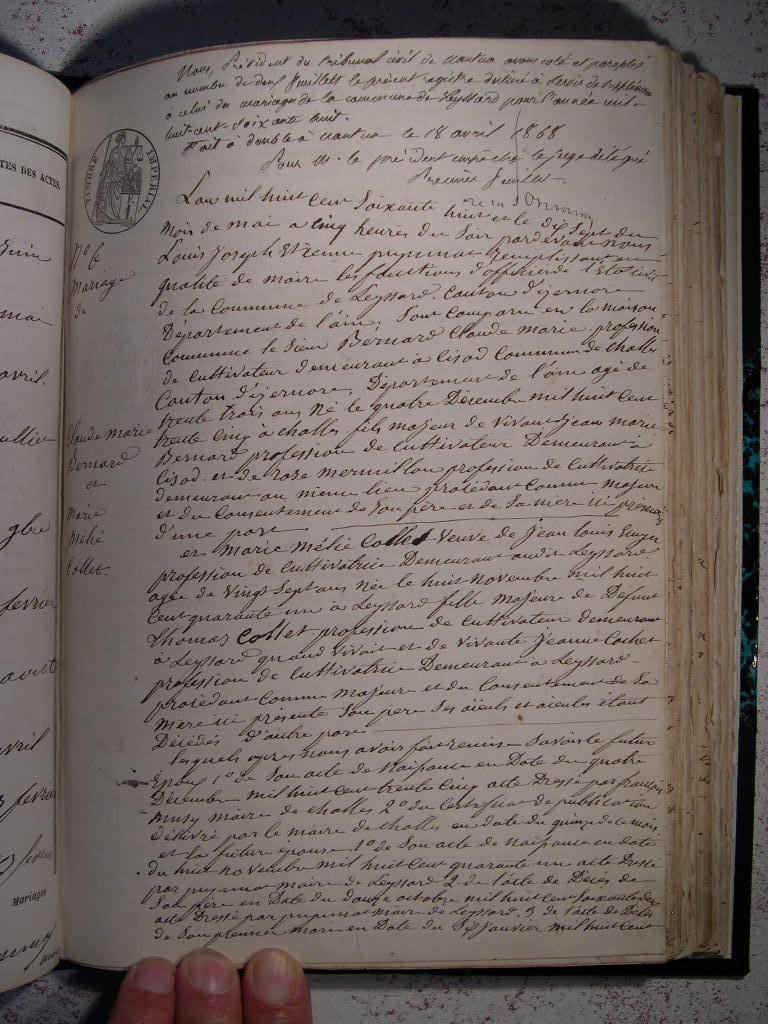 Nous, Président du tribunal civil de Nantua avons coté et paraphé
au nombre de deux feuillets le présent registre destiné à servir de supplément
à celui des mariages de la commune de Leyssard pour l'année mil-
huit-cent-soixante huit.
Fait à double à Nantua le 18 avril 1868
Pour M. le président empêché le juge délégué
Premier feuillet
TIMBRE IMPERIAL
TES DES ACTES.
L'an mil huit cent soixante huit et le dix sept du
mois de mai a cinq heures du soir pardevant nous
Louis Joseph Etienne pupunat remplissant en
qualité de maire les fonctions d'officier de l'Etat civil
de la Commune de Leyssard, Canton d'izernore
Département de l'ain; Sont Comparu en la maison
Commune le Sieur Bernard Claude marie profession
de Cultivateur demeurant à Cisod Commune de challes
Canton d'izernore, Département de l'ain agé de
trente trois ans Né le quatre Décembre mil huit cent
trente Cinq à challes fils majeur de vivant jean marie
Bernard profession de Cultivateur Demeurant à
Cisod et de rose mermillon profession de Cultivatrice
demeurant au meme lieu procédant Comme majeur
et du Consentement de Son père et de Sa mère ici présens
d'une part
N° 6
Mariage
de
Claude marie
Bernard
et
Marie
Mélie
Collet.
et Marie Mélie Collet Veuve de Jean Louis
profession de Cultivatrice Demeurant audit Leyssard
agée de Vingt Sept ans Née le huit Novembre mil huit
Cent quarante un à Leyssard fille majeure de Defunt
Thomas Collet profession de Cultivateur demeurant
à Leyssard quand vivait et de vivante jeanne Cochet
profession de Cultivatrice Demeurant à Leyssard
procédant Comme majeure et du Consentement de Sa
mère ici présente Son père Ses aïeuls et aïeules étant
Décédés d'autre part
lesquels après nous avoir fait remise Savoir le futur
Epoux 1° de Son acte de Naissance en Date du quatre
Décembre mil huit Cent trente Cinq acte Dressé par françois
maire de challes 2° du Certificat de publication
délivré par le maire de challes en date du quinze de ce mois
et la future épouse 1° de Son acte de Naissance en date
du huit Novembre mil huit Cent quarante un acte Dressé
par pupunat maire de Leyssard 2° de l'acte de Décès de
Son père en Date du douze octobre mil huit Cent Soixante
acte Dressé par pupunat maire de Leyssard, 3° de l'acte de Décès
de Son premier mari en Date du Six janvier mil huit Cent
juin
mai
avril.
février
avril
février
Mariages